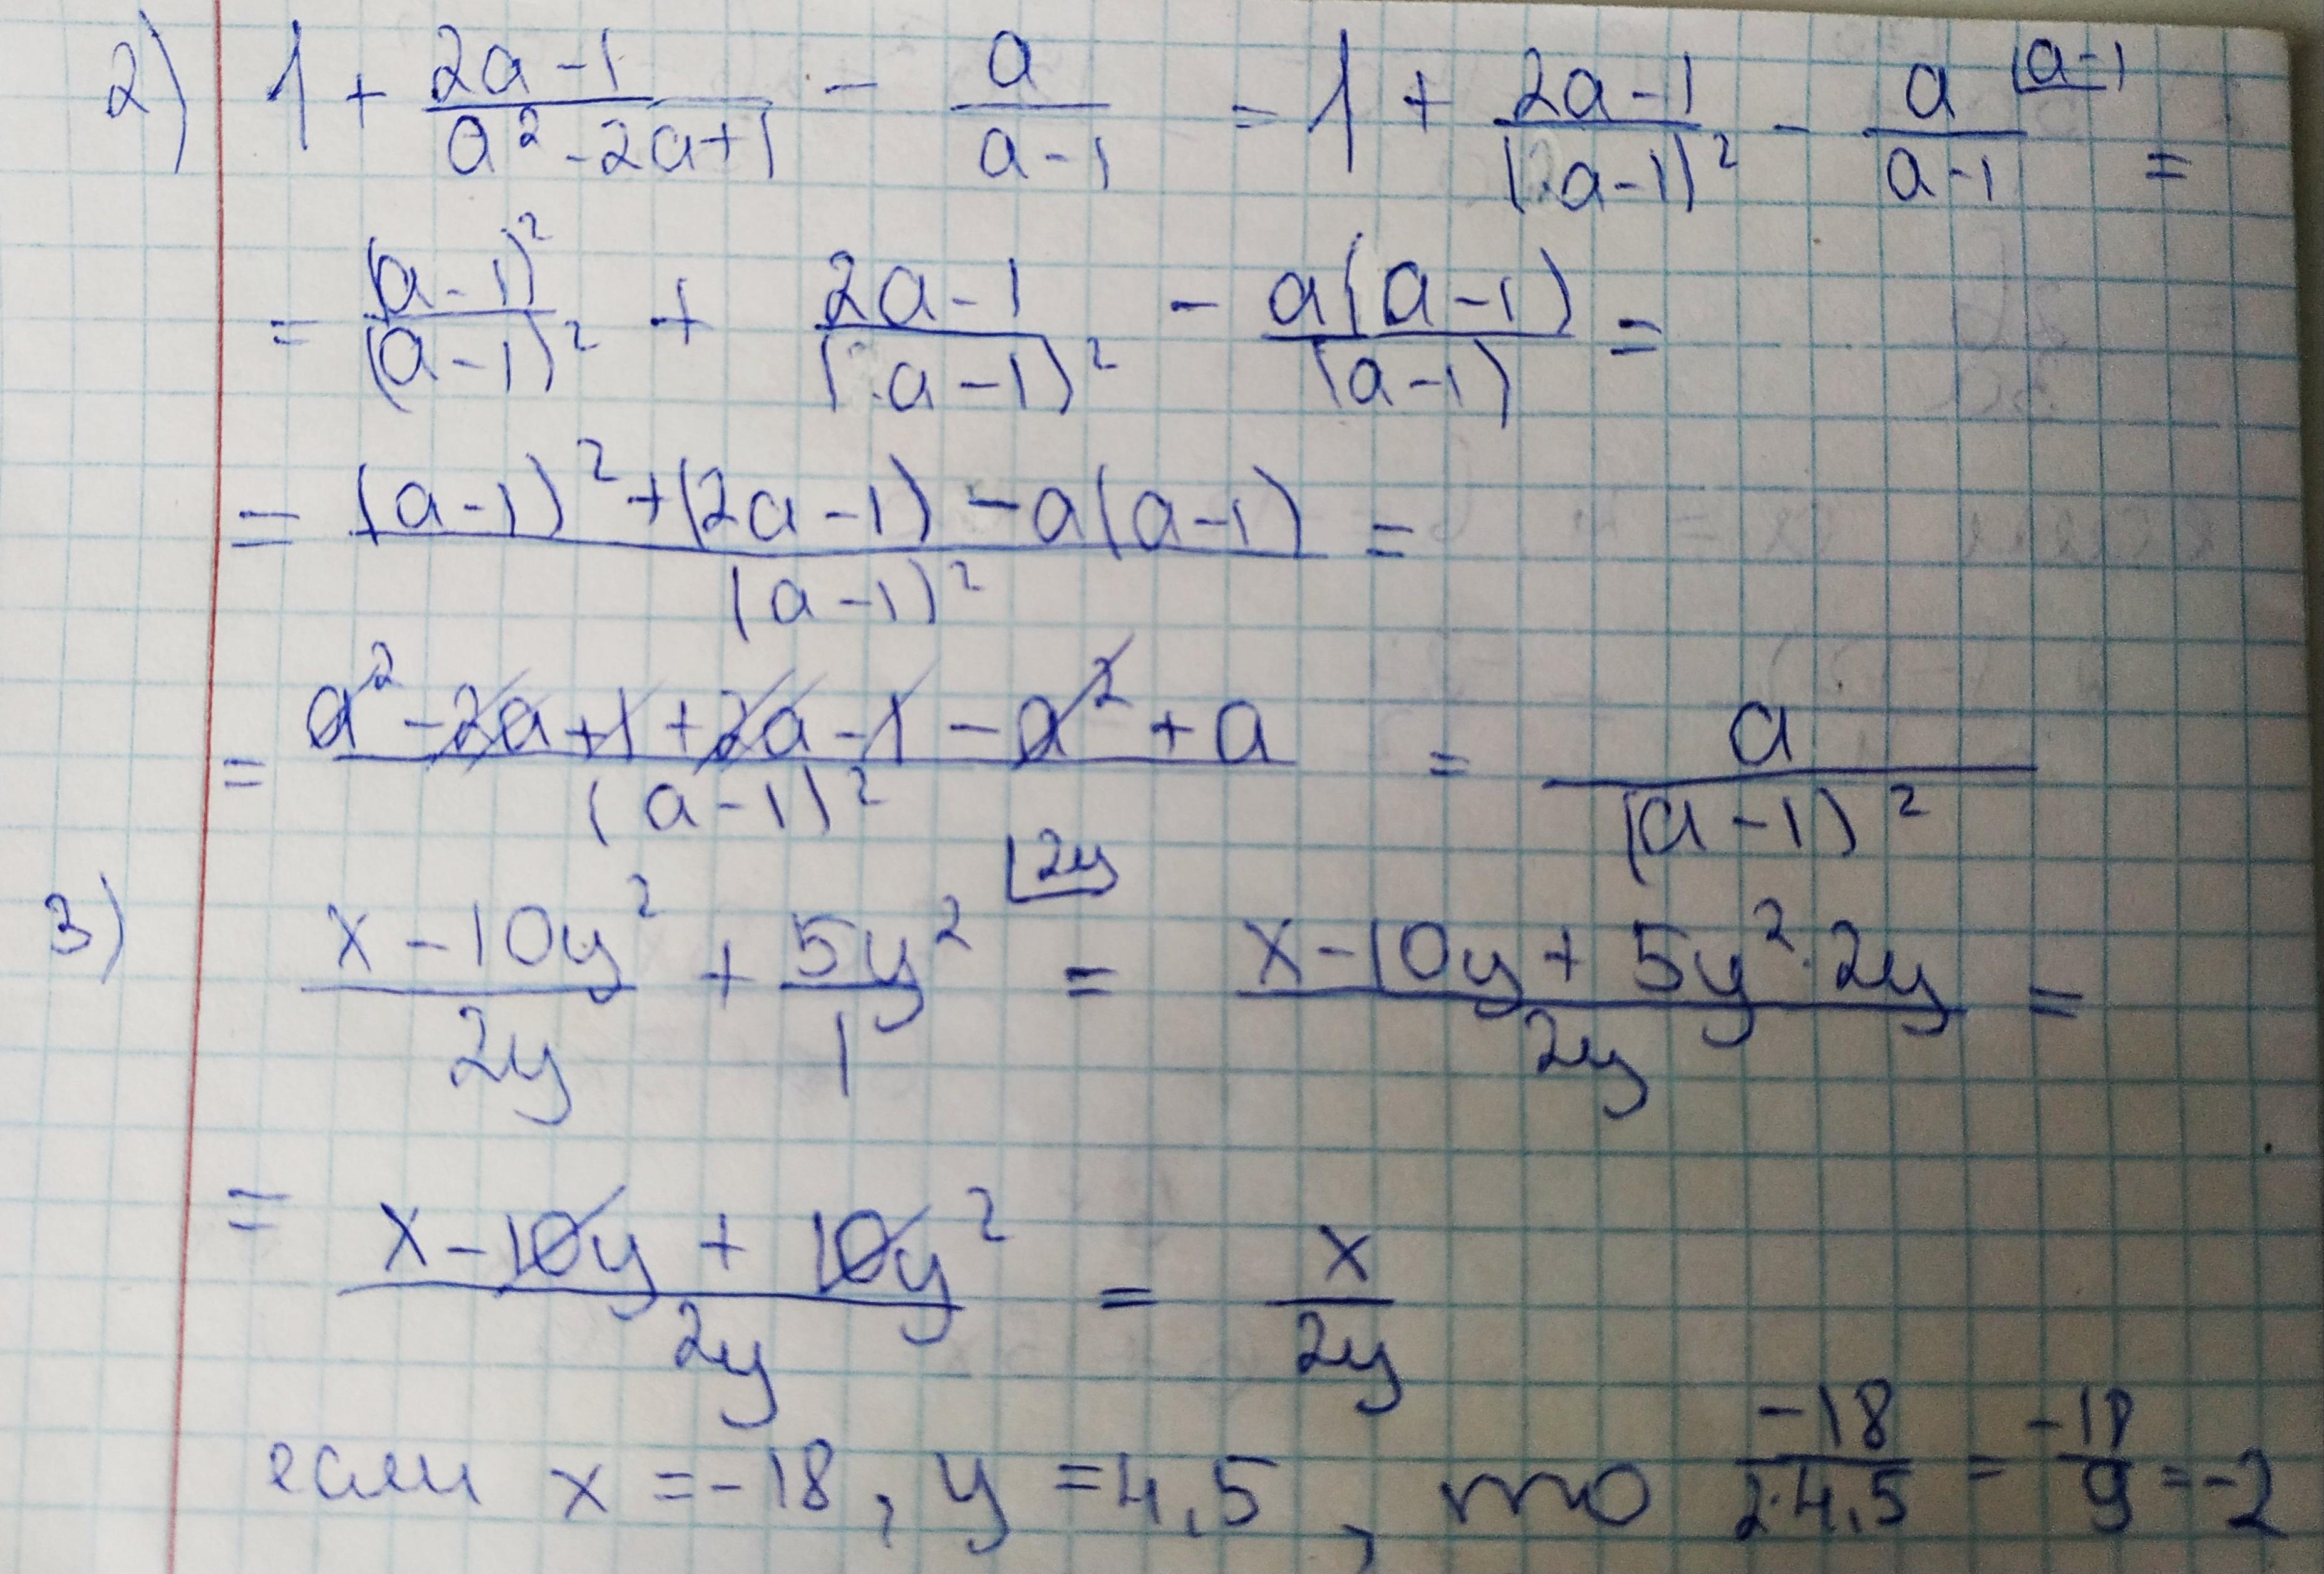 2) 1 + \frac{2a-1}{a^2-2a+1} - \frac{a}{a-1} = 1 + \frac{2a-1}{(a-1)^2} - \frac{a}{a-1} (a-1 =
= \frac{(a-1)^2}{(a-1)^2} + \frac{2a-1}{(a-1)^2} - \frac{a(a-1)}{(a-1)} =
= \frac{(a-1)^2+(2a-1)-a(a-1)}{(a-1)^2} =
= \frac{a^2-2a+1+2a-1-a^2+a}{(a-1)^2} = \frac{a}{(a-1)^2}
3) \frac{x-10y^2}{2y} + \frac{5y^2}{1} |2y = \frac{x-10y+5y^2·2y}{2y} =
= \frac{x-10y+10y^2}{2y} = \frac{x}{2y}
если x = -18, y = 4,5, то \frac{-18}{2·4,5} = \frac{-18}{9} = -2